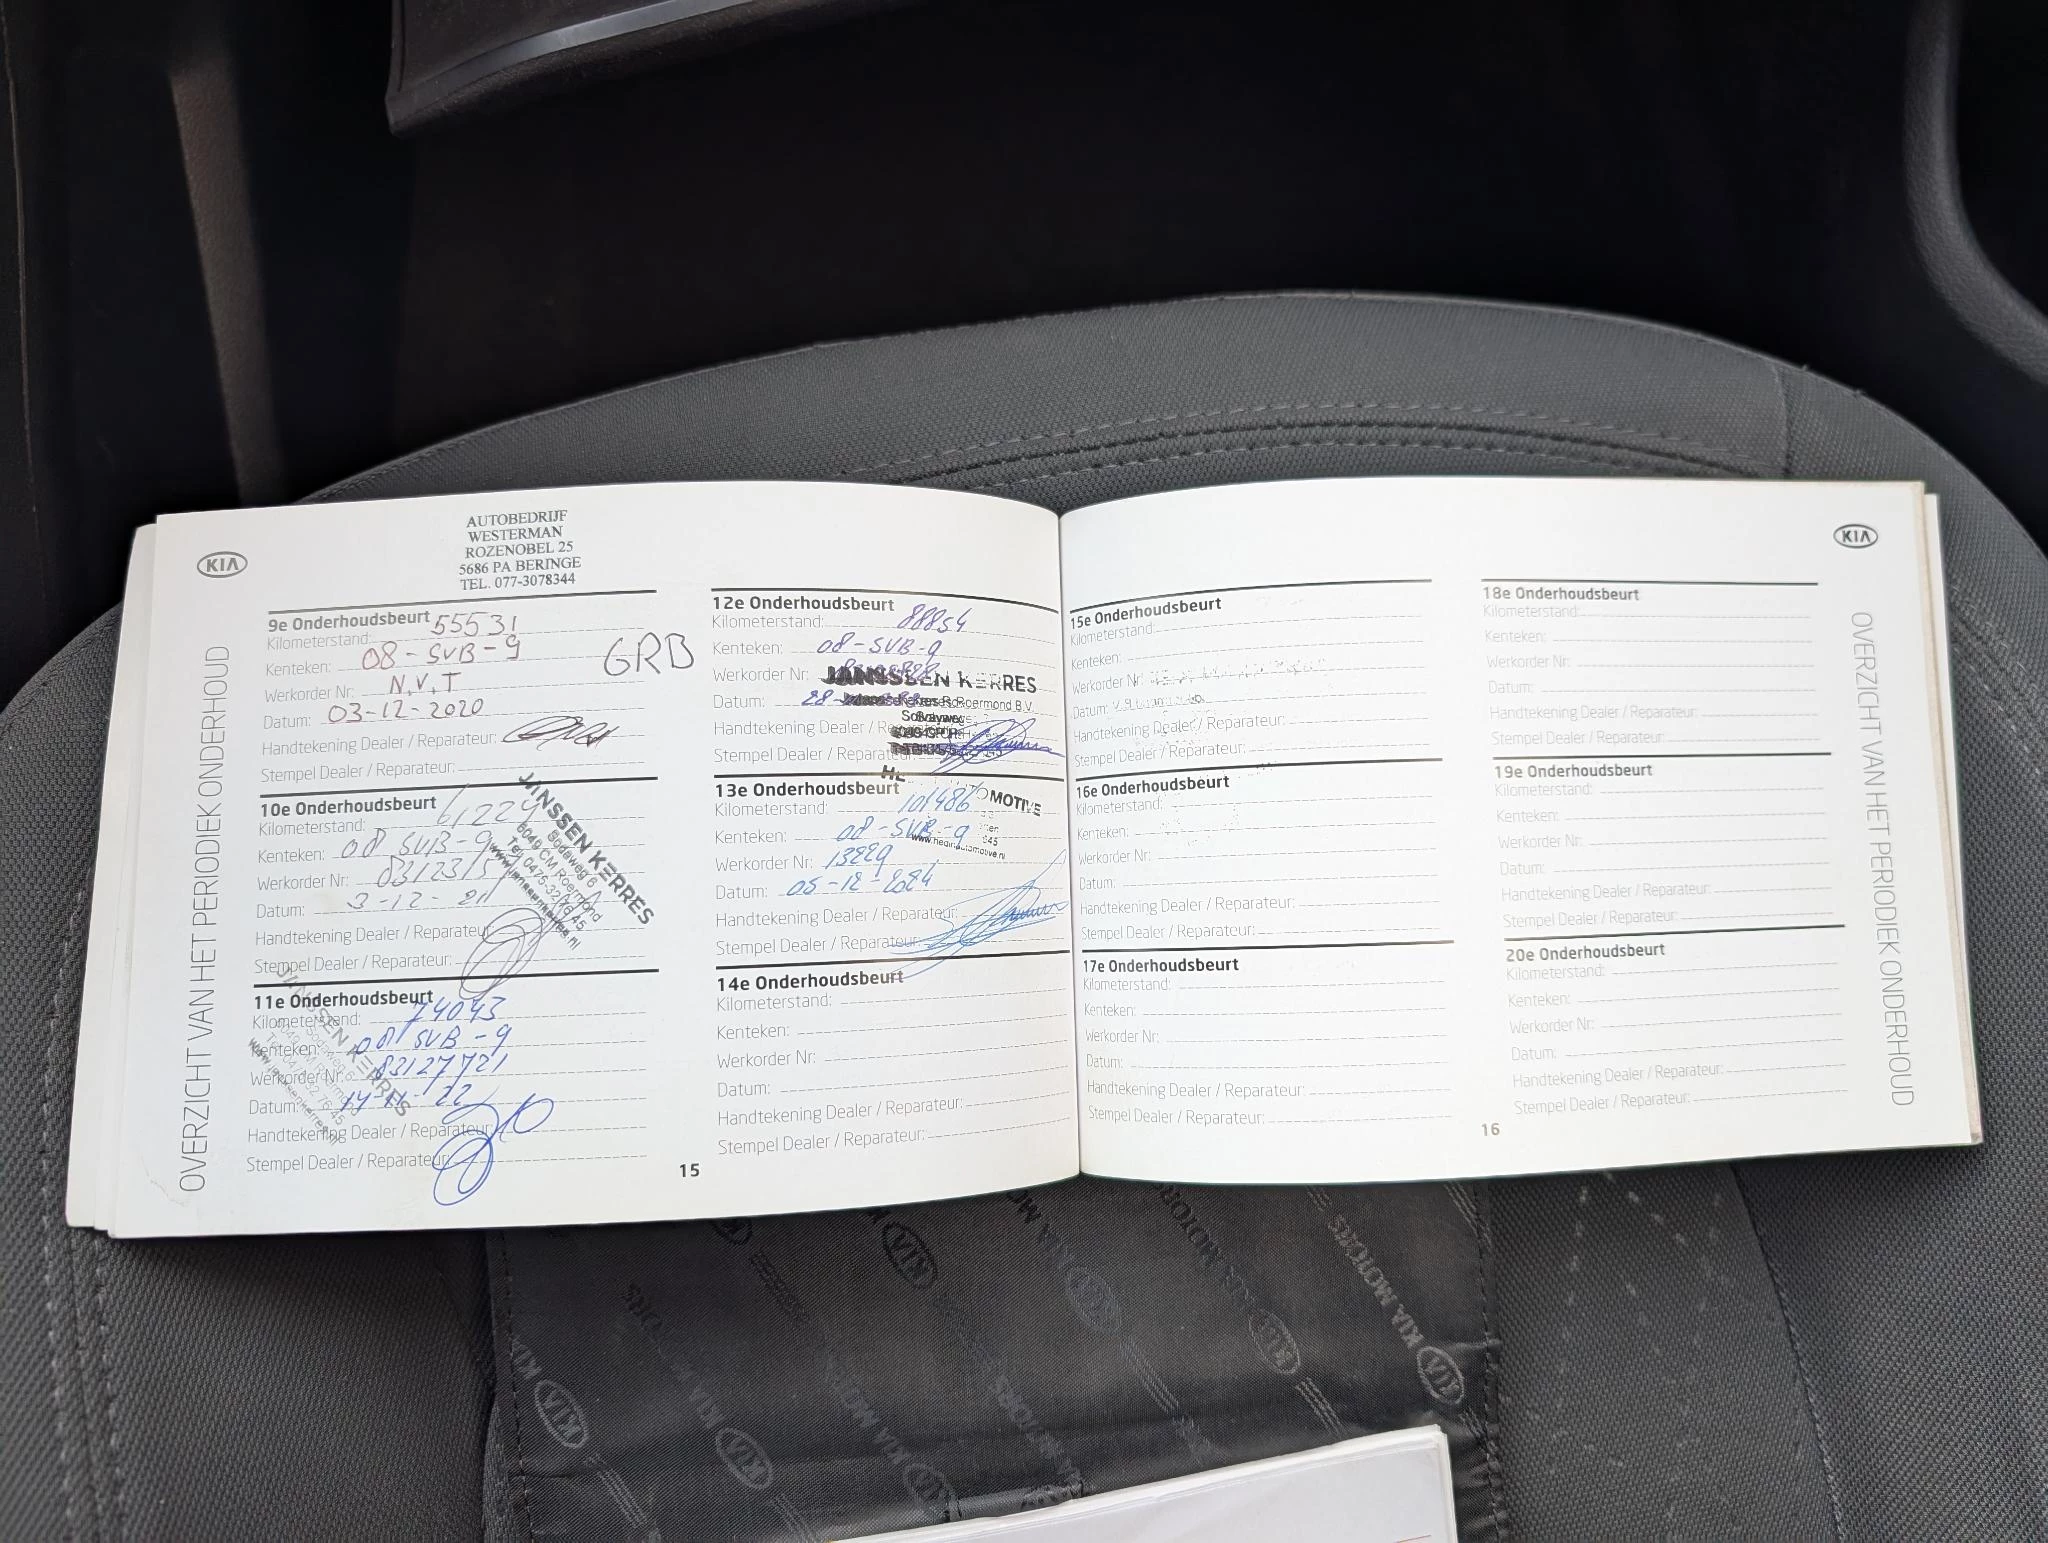 KIA
OVERZICHT VAN HET PERIODIEK ONDERHOUD
AUTOBEDRIJF
WESTERMAN
ROZENOBEL 25
5686 PA BERINGE
TEL. 077-3078344
9e Onderhoudsbeurt
Kilometerstand: 55531
Kenteken: 08-SVB-9
GRB
Werkorder Nr: N.V.T
Datum: 03-12-2020
Handtekening Dealer / Reparateur:
Stempel Dealer / Reparateur:
10e Onderhoudsbeurt
Kilometerstand: 61224
Kenteken: 08 SVB-9
Werkorder Nr:
Datum: 3-12-
Handtekening Dealer / Reparateur:
Stempel Dealer / Reparateur:
JANSSEN KERRES
Sodaweg 6
6049 CM Roermond
Tel. 0475-32 76 45
www.janssenkerres.nl
11e Onderhoudsbeurt
Kilometerstand: 74043
Kenteken: 08 SVB-9
Werkorder Nr: 83127721
Datum: 14-11-22
Handtekening Dealer / Reparateur:
Stempel Dealer / Reparateur:
JANSSEN KERRES
Sodaweg 6
6049 CM Roermond
Tel. 0475-32 76 45
www.janssenkerres.nl
12e Onderhoudsbeurt
Kilometerstand: 88854
Kenteken: 08-SVB-9
Werkorder Nr:
JANSSEN KERRES
Datum: 28-
Roermond B.V.
Handtekening Dealer / Reparateur:
Stempel Dealer / Reparateur:
13e Onderhoudsbeurt
Kilometerstand: 101486
MOTIVE
Kenteken: 08-SVB-9
Werkorder Nr: 13229
Datum: 05-12-2024
Handtekening Dealer / Reparateur:
Stempel Dealer / Reparateur:
14e Onderhoudsbeurt
Kilometerstand:
Kenteken:
Werkorder Nr:
Datum:
Handtekening Dealer / Reparateur:
Stempel Dealer / Reparateur:
15
15e Onderhoudsbeurt
Kilometerstand:
Kenteken:
Werkorder Nr:
Datum:
Handtekening Dealer / Reparateur:
Stempel Dealer / Reparateur:
16e Onderhoudsbeurt
Kilometerstand:
Kenteken:
Werkorder Nr:
Datum:
Handtekening Dealer / Reparateur:
Stempel Dealer / Reparateur:
17e Onderhoudsbeurt
Kilometerstand:
Kenteken:
Werkorder Nr:
Datum:
Handtekening Dealer / Reparateur:
Stempel Dealer / Reparateur:
18e Onderhoudsbeurt
Kilometerstand:
Kenteken:
Werkorder Nr:
Datum:
Handtekening Dealer / Reparateur:
Stempel Dealer / Reparateur:
19e Onderhoudsbeurt
Kilometerstand:
Kenteken:
Werkorder Nr:
Datum:
Handtekening Dealer / Reparateur:
Stempel Dealer / Reparateur:
20e Onderhoudsbeurt
Kilometerstand:
Kenteken:
Werkorder Nr:
Datum:
Handtekening Dealer / Reparateur:
Stempel Dealer / Reparateur:
16
KIA
OVERZICHT VAN HET PERIODIEK ONDERHOUD
KIA MOTORS